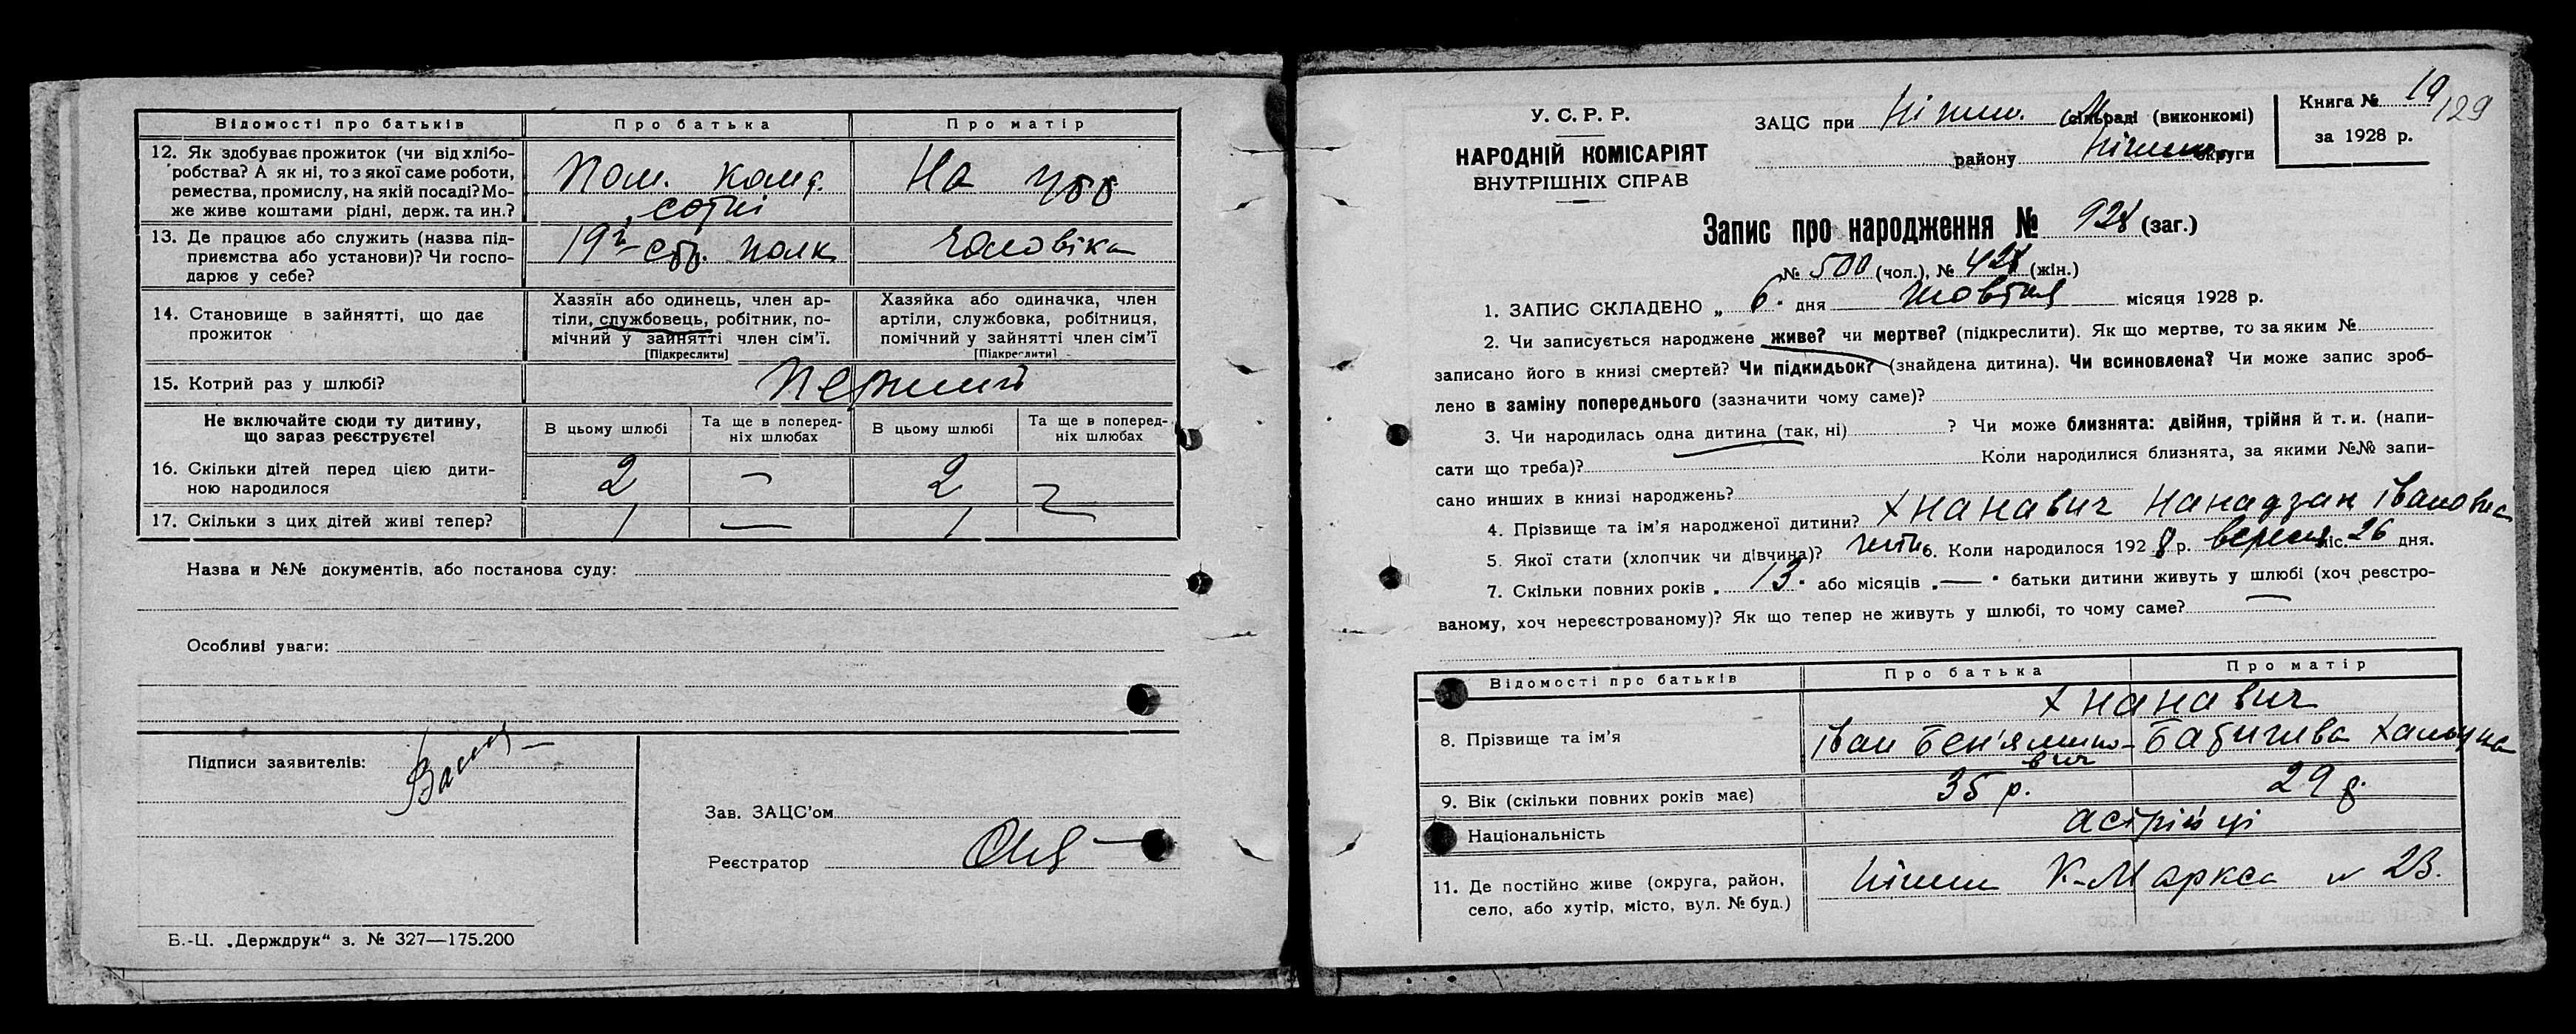 Відомості про батьків Про батька Про матір
12. Як здобуває прожиток (чи від хлібо-
робства? А як ні, то з якої саме роботи,
ремества, промислу, на якій посаді? Мо-
же живе коштами рідні, держ. та ин.?
Пом. Коман. сотні
На утр
13. Де працює або служить (назва під-
приємства або установи)? Чи госпо-
дарює у себе?
19й полк
Чоловіка
14. Становище в зайнятті, що дає
прожиток
Хазяїн або одинець, член ар-
тіли, службовець, робітник, по-
мічний у зайнятті член сім'ї.
[Підкреслити]
Хазяйка або одиначка, член
артіли, службовка, робітниця,
помічний у зайнятті член сім'ї
[Підкреслити]
15. Котрий раз у шлюбі?
Перший
Не включайте сюди ту дитину,
що зараз реєструєте!
В цьому шлюбі
Та ще в поперед-
ніх шлюбах
В цьому шлюбі
Та ще в поперед-
ніх шлюбах
16. Скільки дітей перед цією дити-
ною народилося
2 — 2 —
17. Скільки з цих дітей живі тепер?
1 — 1
Назва и №№ документів, або постанова суду:
Особливі уваги:
Підписи заявителів:
Зав. ЗАЦС'ом
Реєстратор
Б.-Ц. „Держдрук“ з. № 327—175.200
У. С. Р. Р.
НАРОДНІЙ КОМІСАРІЯТ
ВНУТРІШНІХ СПРАВ
ЗАЦС при Ніжин. сільраді (виконкомі)
району Ніжин округи
Книга № 19/129
за 1928 р.
Запис про народження № 928 (заг.)
№ 500 (чол.), № 428 (жін.)
1. ЗАПИС СКЛАДЕНО „ 6 “ дня жовтня місяця 1928 р.
2. Чи записується народжене живе? чи мертве? (підкреслити). Як що мертве, то за яким №
записано його в книзі смертей? Чи підкидьок? (знайдена дитина). Чи всиновлена? Чи може запис зроб-
лено в заміну попереднього (зазначити чому саме)?
3. Чи народилась одна дитина (так, ні) ? Чи може близнята: двійня, трійня й т. и. (напи-
сати що треба)? Коли народилися близнята, за якими №№ запи-
сано инших в книзі народжень?
4. Прізвище та ім'я народженої дитини? Хнанавич Нанадзан Івановна
5. Якої стати (хлопчик чи дівчина)? жін 6. Коли народилося 1928 р. вересня міс. 26 дня.
7. Скільки повних років „ 13 “ або місяців „ — “ батьки дитини живуть у шлюбі (хоч реєстро-
ваному, хоч нереєстрованому)? Як що тепер не живуть у шлюбі, то чому саме?
Відомості про батьків Про батька Про матір
8. Прізвище та ім'я
Хнанавич
Іван Бен'ямино-
вич
9. Вік (скільки повних років має) 35 р. 29 р.
Національність асірійці
11. Де постійно живе (округа, район,
село, або хутір, місто, вул. № буд.)
Ніжин К-Маркса № 23.